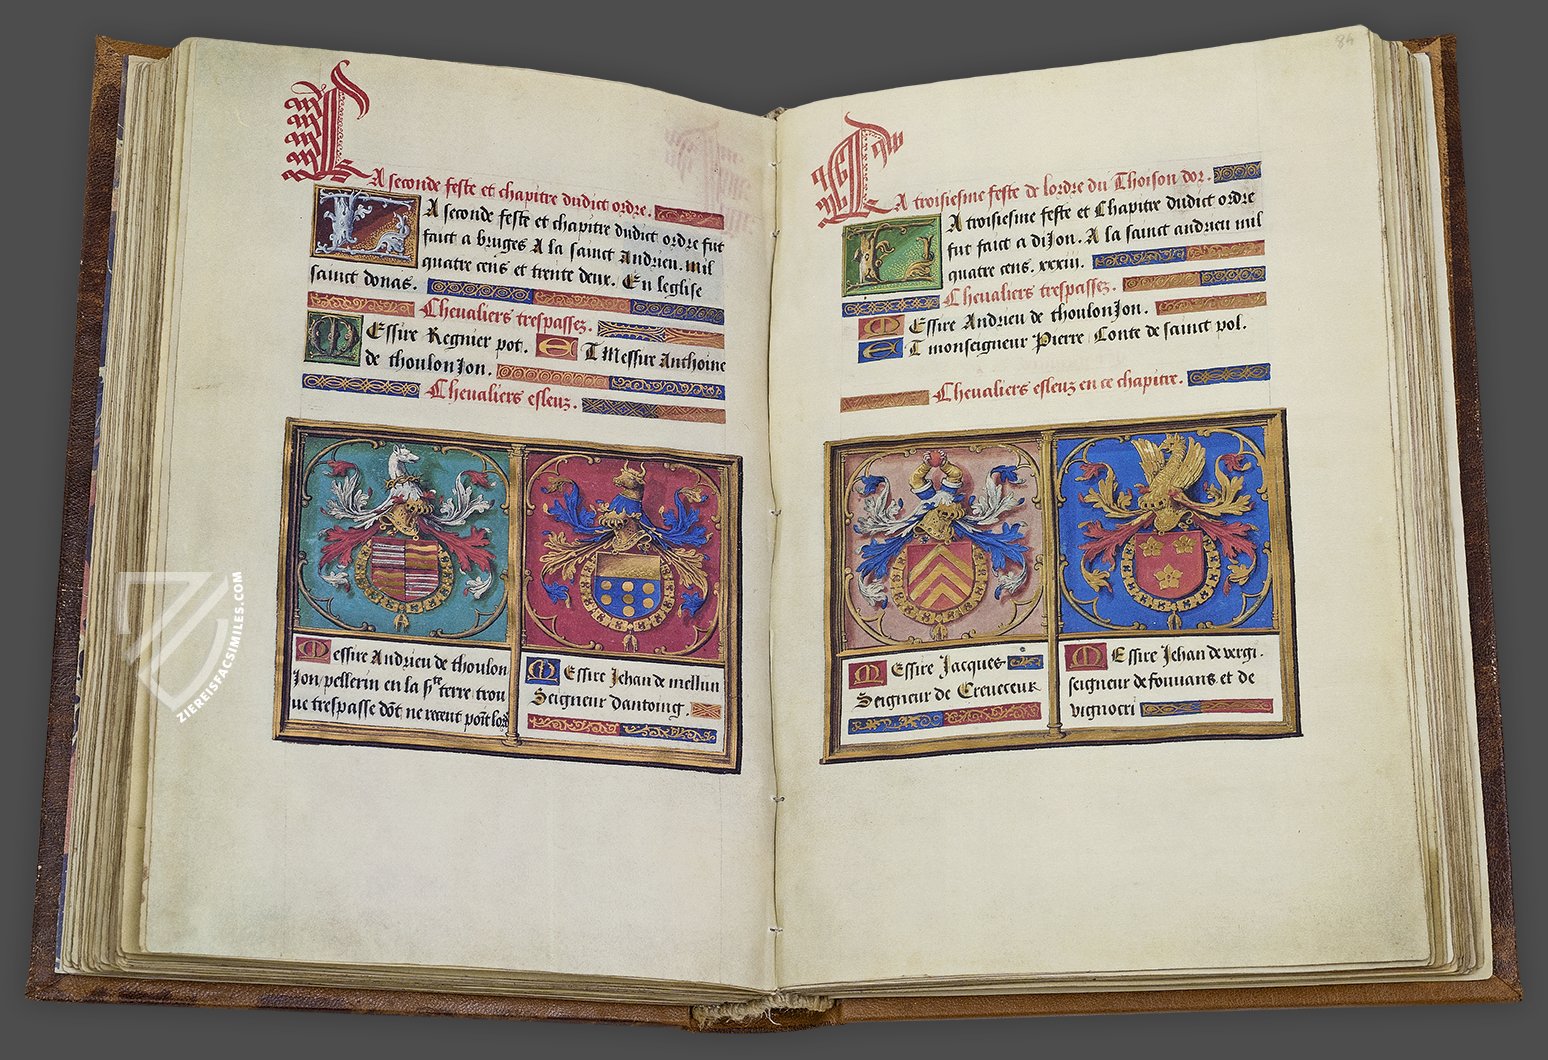 LA seconde feste et chapitre dudict ordre.
LA seconde feste et chapitre dudict ordre fut
faict a bruges A la sainct Andrieu. mil
quatre cens et trente deux. En leglise
sainct donas.
Chevaliers trespassez.
MEssire Regnier pot. ET Messire Anthoine
de thoulonJon.
Chevaliers esleuz.
Messire Andrieu de thoulon
Jon pellerin en la ste terre trou
ue trespasse dōt ne receut poīt lordre
MEssire Jehan de mellun
Seigneur dantoing.
84
LA troisiesme feste de lordre du Thoison dor.
LA troisiesme feste et Chapitre dudict ordre
fut faict a diJon. A la sainct andrieu mil
quatre cens. xxxiii.
Chevaliers trespassez.
MEssire Andrieu de thoulonJon.
ET monseigneur Pierre Conte de sainct pol.
Chevaliers esleuz en ce chapitre.
MEssire Jacques
Seigneur de Creueceur
MEssire Jehan de vergi.
seigneur de fouuans et de
vignocri
ZIEREISFACSIMILES.COM